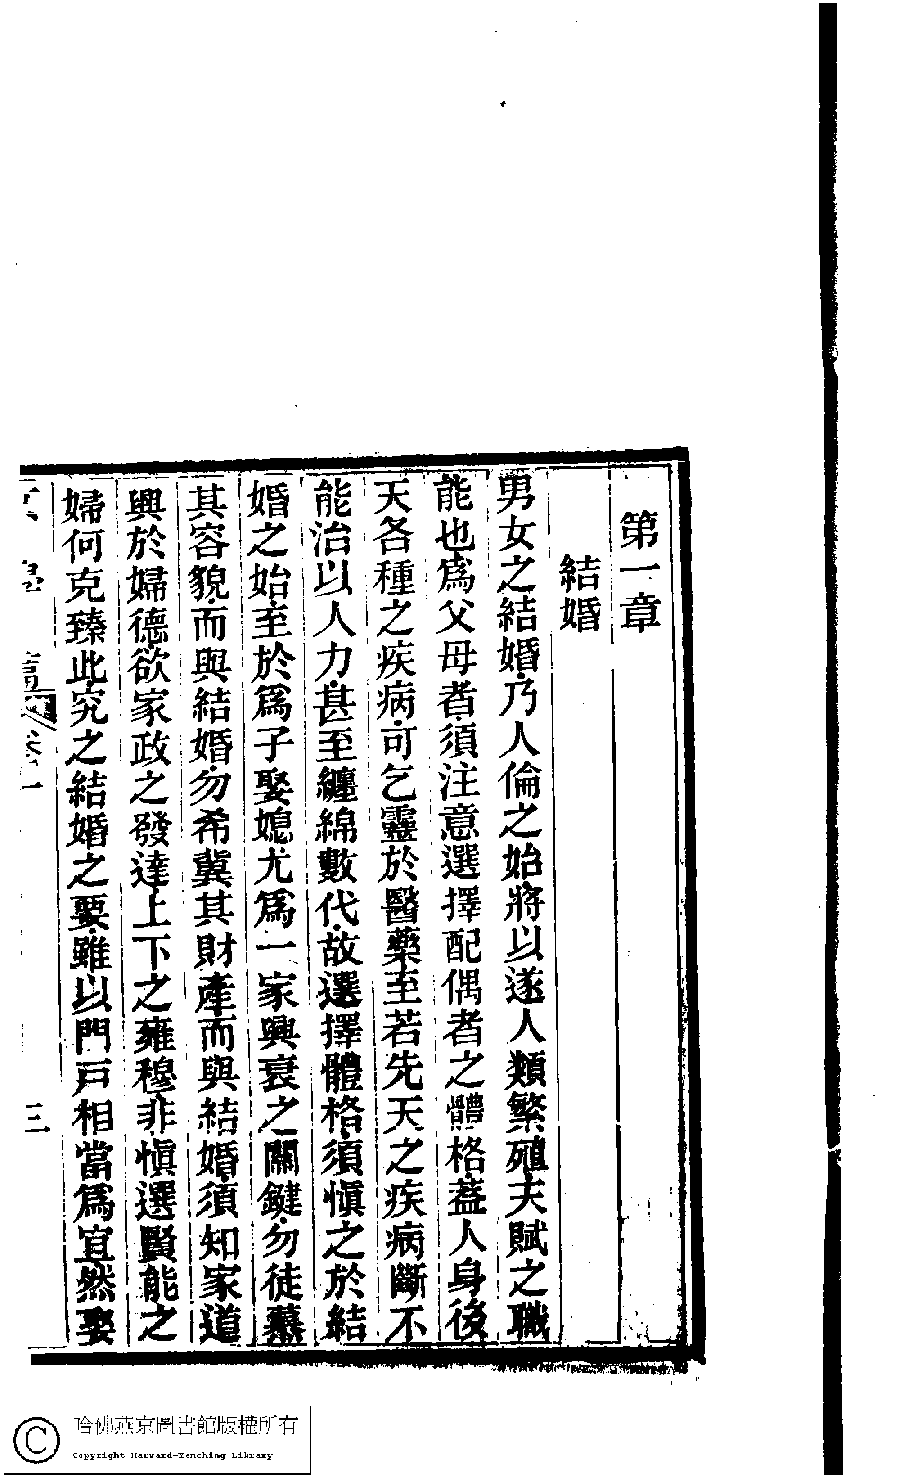 第一章
結婚
男女之結婚乃人倫之始將以遂人類繁殖天賦之職
能也爲父母者須注意選擇配偶者之體格蓋人身後
天各種之疾病可乞靈於醫藥至若先天之疾病斷不
能治以人力甚至纏綿數代故選擇體格須愼之於結
婚之始至於爲子娶媳尤爲一家興衰之關鍵勿徒慕
其容貌而與結婚勿希冀其財產而與結婚須知家道
興於婦德欲家政之發達上下之雍穆非愼選賢能之
婦何克臻此究之結婚之要雖以門戸相當爲宜然娶
三
哈佛燕京圖書館版權所有
Copyright Harvard-Yenching Library